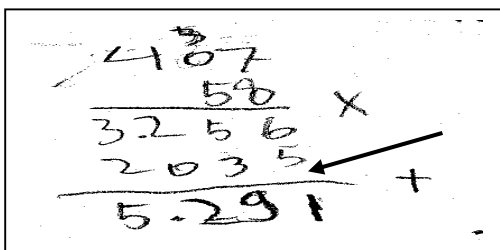 5
407
58
×
3.256
2035
+
5.291